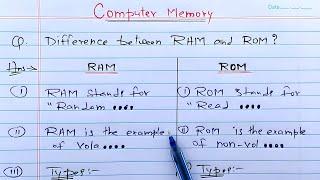 Date
Computer Memory
Q. Difference between RAM and ROM?
Ans:→ RAM ROM
(i) RAM stands for (i) ROM stands for
"Random .... "Read ....
(ii) RAM is the example (ii) ROM is the example
of vola.... of non-vol....
(iii) Types:- Types:-